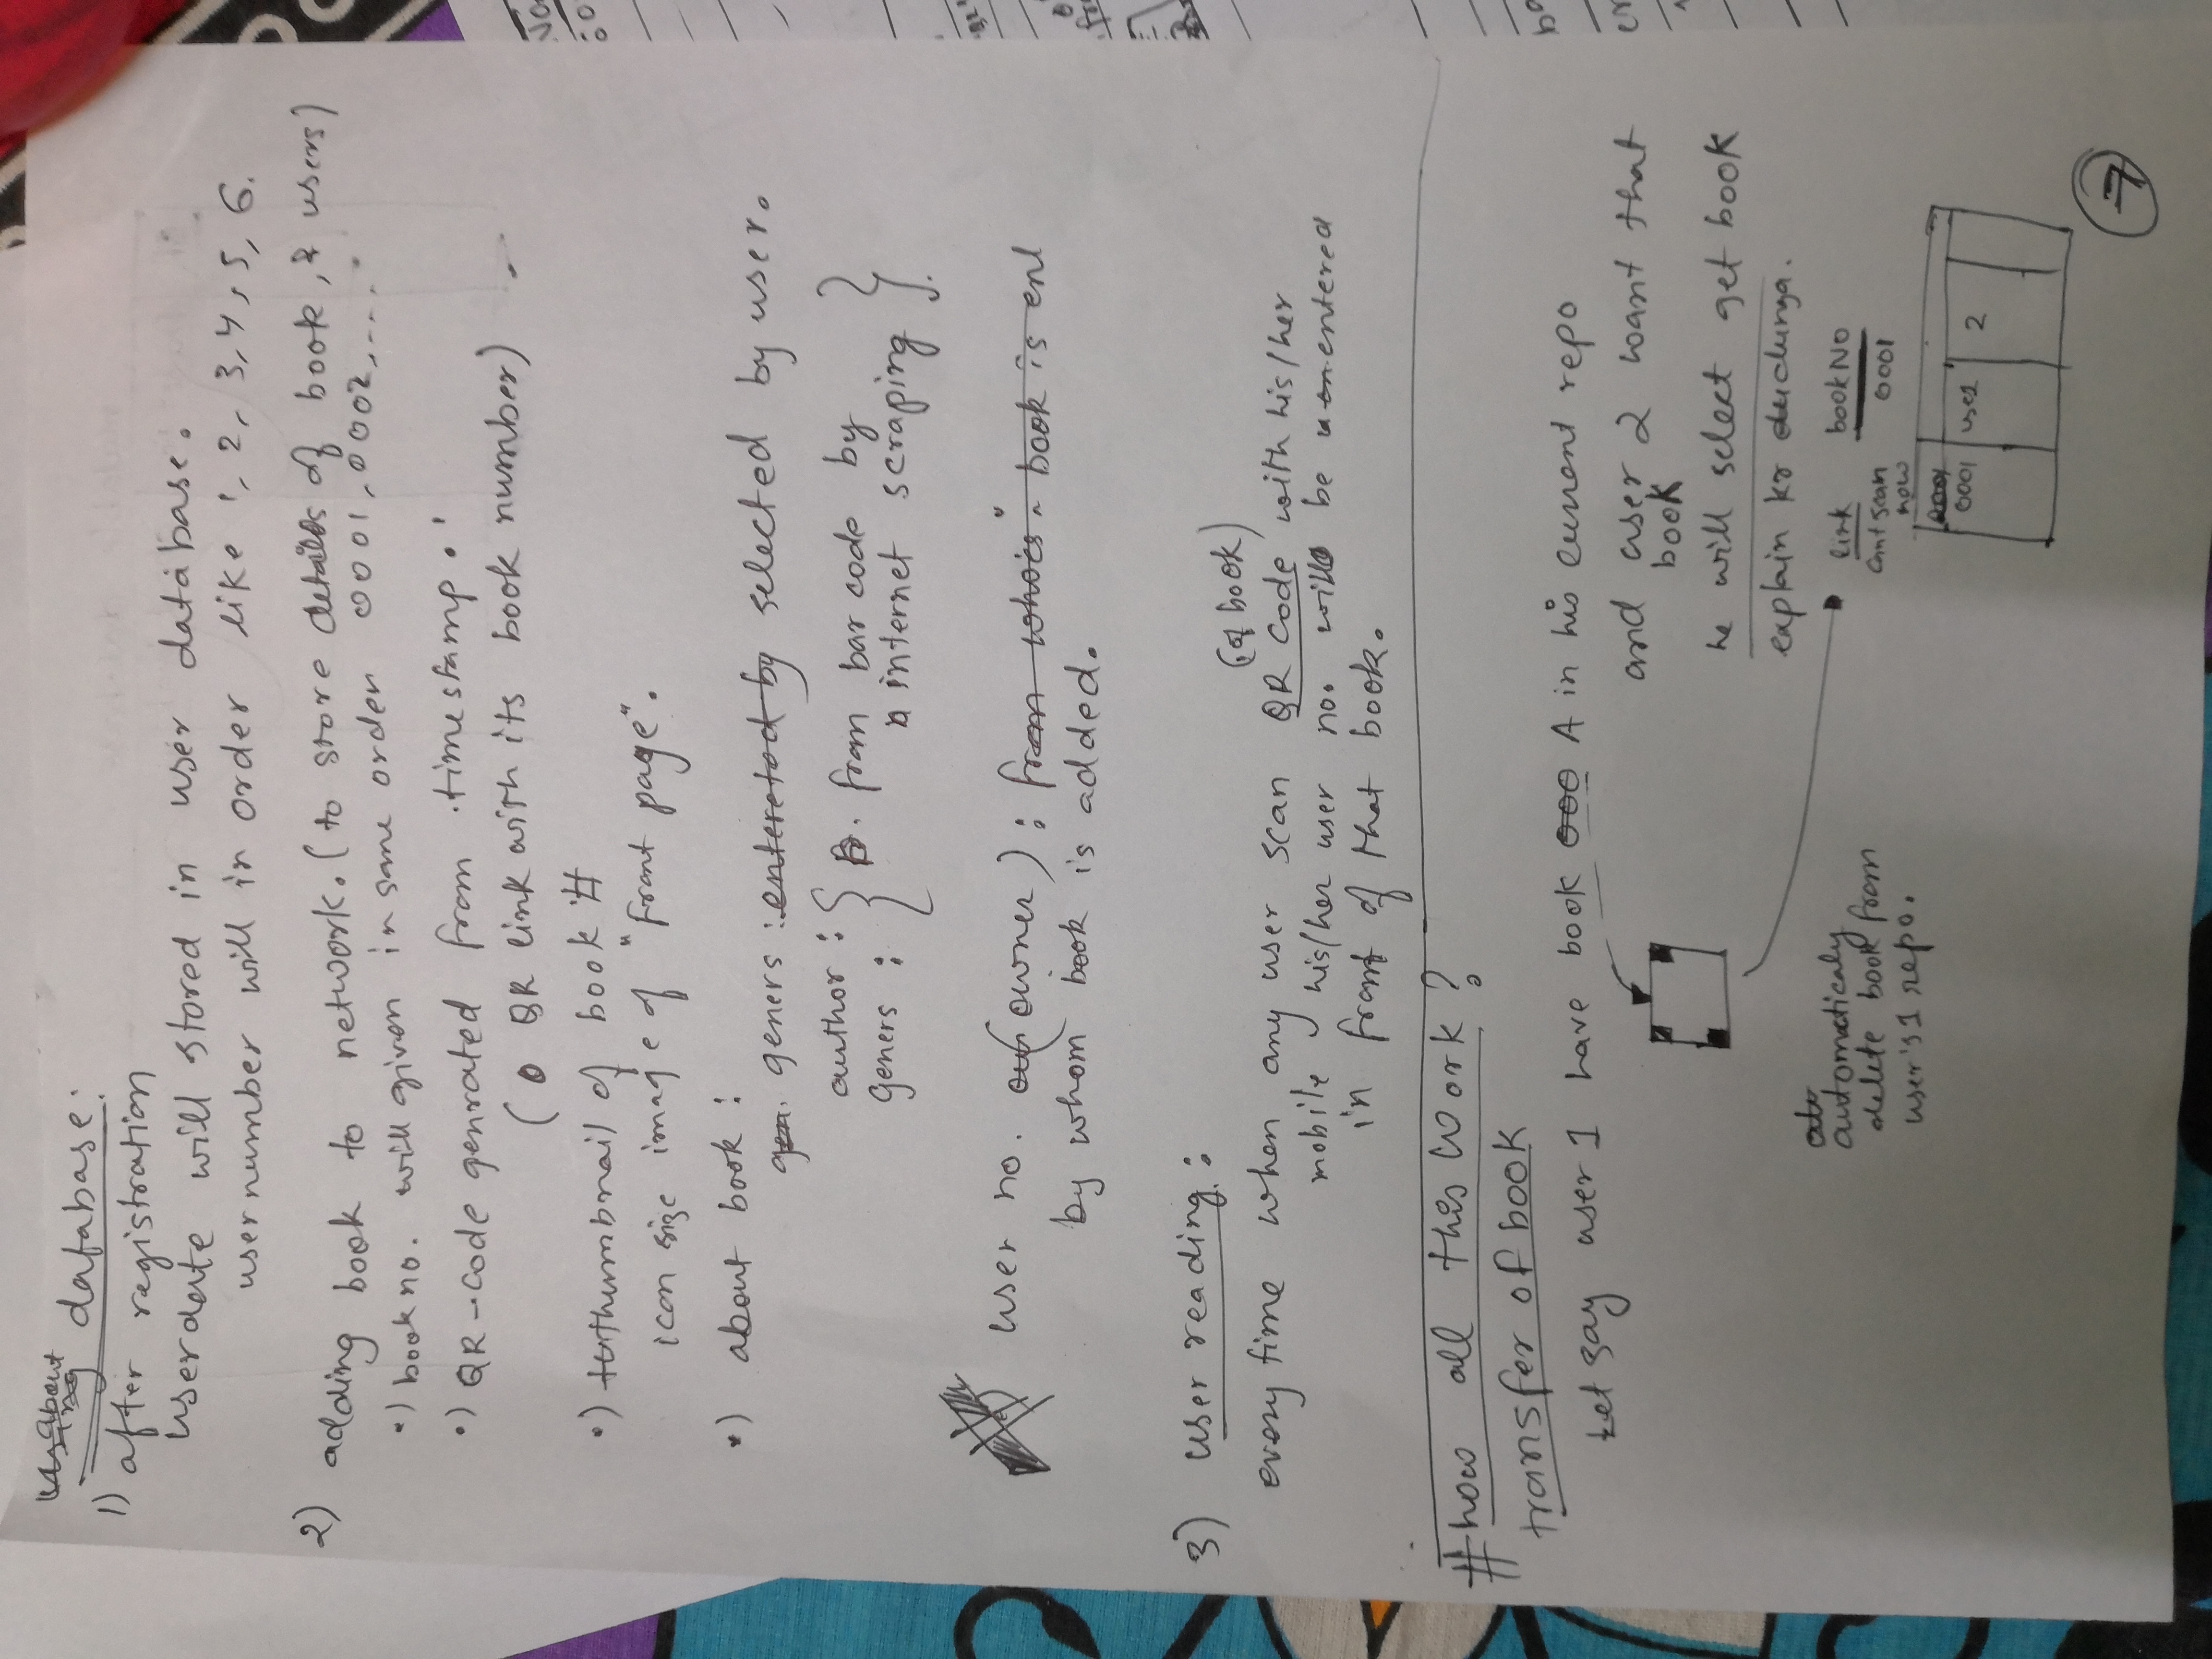 about database:
1) after registration
userdate will stored in user database.
user number will in order like 1, 2, 3, 4, 5, 6.
2) adding book to network. (to store details of book, & users)
•) book no. will given in same order 0001, 0002, ....
•) QR-code genrated from timestamp.
( QR link with its book number)
•) thumbnail of book #
icon size image of "front page".
•) about book :
geners : selected by user.
author : { from bar code by
geners : internet scraping }
user no. (owner) :
by whom book is added.
3) user reading :
(of book)
every time when any user scan QR code with his/her
mobile his/her user no. will be entered
in front of that book.
# how all this work ?
transfer of book
Let say user 1 have book A in his current repo
and user 2 want that
book
he will select get book
explain kr dudunga.
automaticaly
delete book from
user's 1 repo.
link bookNo
cant scan 0001
now
0001 use1 2
7